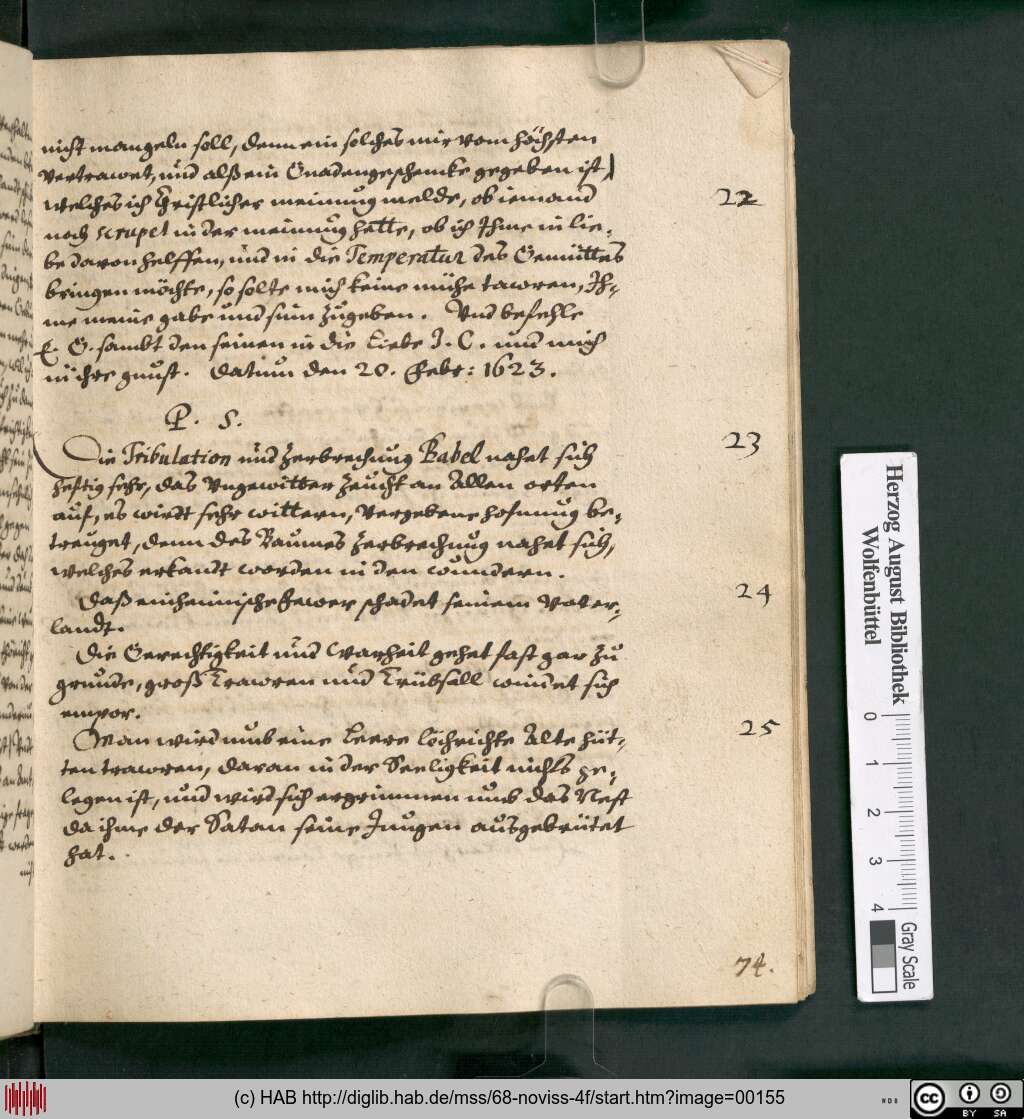 nicht mangeln soll, denn ein solches mir vom höchsten
vertrawet, und alß ein Gnadengeschencke gegeben ist,)
welches ich Christlicher meinung melde, ob iemand
22
noch scrupel in der meinung hette, ob ich Ihme in lie-
be davon helffen, und in die Temperatur des Gemüttes
bringen möchte, so solte mich keine mühe tawren, Ih-
me meine gabe und sinn zugeben. Und befehle
E. G. sambt den seinen in die Liebe J. C. und mich
in ihre gunst. Datum den 20. Febr: 1623.
P. S.
Die Tribulation und Zerbrechung Babel nahet sich
23
hefftig sehr, das Ungewitter zeucht an Allen orten
auf, es wirtt sehr wittern, vergebene hofnung be-
treuget, denn des Baumes Zerbrechnug nahet sich,
welches erkandt worden in den wundern.
Daß einheimische fewer schadet seinem Vater-
24
landt.
Die Gerechtigkeit und Warheit gehet fast gar zu
grunde, groß Trawren und Trübsall windet sich
empor.
Man wird umb eine Leere löchrichte Alte hüt-
25
ten trawren, daran in der Seeligkeit nichts ge-
legen ist, und wird sich ergrimmen umb das Nest
da ihme der Satan seine Jungen ausgebrütet
hat.
74.
Herzog August Bibliothek
Wolfenbüttel
0 1 2 3 4
Gray Scale
(c) HAB http://diglib.hab.de/mss/68-noviss-4f/start.htm?image=00155
cc BY SA